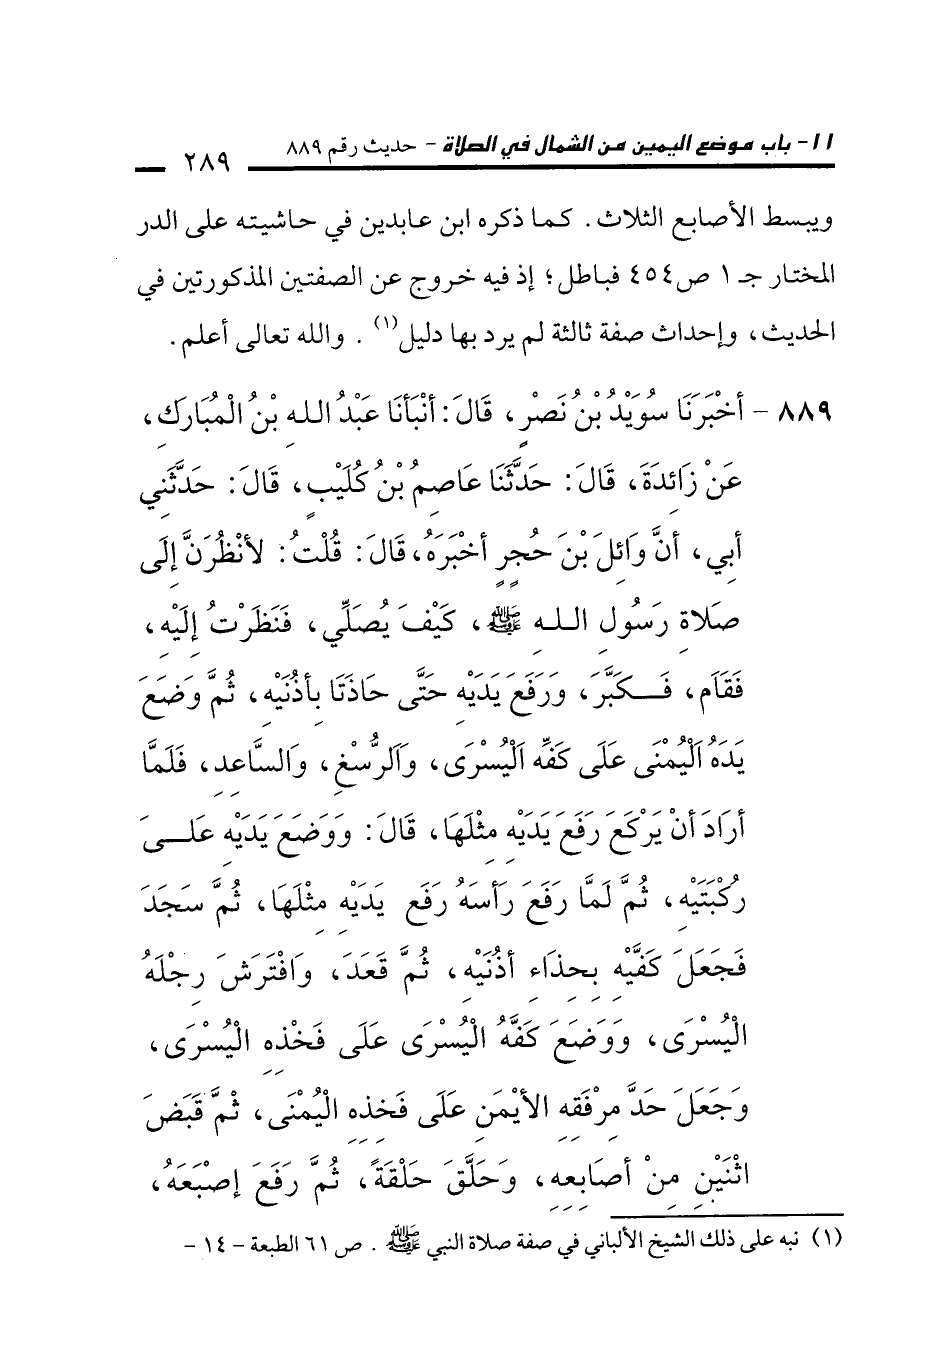 ١١- باب موضع اليمين من الشمال في الصلاة - حديث رقم ٨٨٩ ٢٨٩
ويبسط الأصابع الثلاث. كما ذكره ابن عابدين في حاشيته على الدر
المختار جـ ١ ص٤٥٤ فباطل؛ إذ فيه خروج عن الصفتين المذكورتين في
الحديث، وإحداث صفة ثالثة لم يرد بها دليل(١) . والله تعالى أعلم.
٨٨٩ - أَخْبَرَنَا سُوَيْدُ بْنُ نَصْرٍ، قَالَ: أَنْبَأَنَا عَبْدُ اللهِ بْنُ الْمُبَارَكِ،
عَنْ زَائِدَةَ، قَالَ: حَدَّثَنَا عَاصِمُ بْنُ كُلَيْبٍ، قَالَ: حَدَّثَنِي
أَبِي، أَنَّ وَائِلَ بْنَ حُجْرٍ أَخْبَرَهُ، قَالَ: قُلْتُ: لأَنْظُرَنَّ إِلَى
صَلاَةِ رَسُولِ اللهِ ﷺ، كَيْفَ يُصَلِّي، فَنَظَرْتُ إِلَيْهِ،
فَقَامَ، فَكَبَّرَ، وَرَفَعَ يَدَيْهِ حَتَّى حَاذَتَا بِأُذُنَيْهِ، ثُمَّ وَضَعَ
يَدَهُ الْيُمْنَى عَلَى كَفِّهِ الْيُسْرَى، وَالرُّسْغِ، وَالسَّاعِدِ، فَلَمَّا
أَرَادَ أَنْ يَرْكَعَ رَفَعَ يَدَيْهِ مِثْلَهَا، قَالَ: وَوَضَعَ يَدَيْهِ عَلَى
رُكْبَتَيْهِ، ثُمَّ لَمَّا رَفَعَ رَأْسَهُ رَفَعَ يَدَيْهِ مِثْلَهَا، ثُمَّ سَجَدَ
فَجَعَلَ كَفَّيْهِ بِحِذَاءِ أُذُنَيْهِ، ثُمَّ قَعَدَ، وَافْتَرَشَ رِجْلَهُ
الْيُسْرَى، وَوَضَعَ كَفَّهُ الْيُسْرَى عَلَى فَخِذِهِ الْيُسْرَى،
وَجَعَلَ حَدَّ مِرْفَقِهِ الأَيْمَنِ عَلَى فَخِذِهِ الْيُمْنَى، ثُمَّ قَبَضَ
اثْنَيْنِ مِنْ أَصَابِعِهِ، وَحَلَّقَ حَلْقَةً، ثُمَّ رَفَعَ إِصْبَعَهُ،
(١) نبه على ذلك الشيخ الألباني في صفة صلاة النبي ﷺ . ص ٦١ الطبعة - ١٤ -